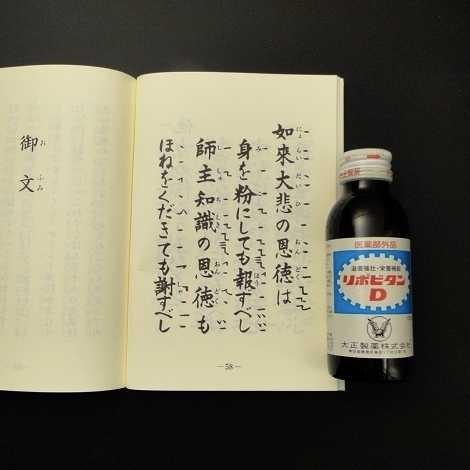 如來大悲の恩徳は
身を粉にしても報ずべし
師主知識の恩徳も
ほねをくだきても謝すべし
—58—
御文
医薬部外品
滋養強壮・栄養補給
リポビタン
D
大正製薬株式会社